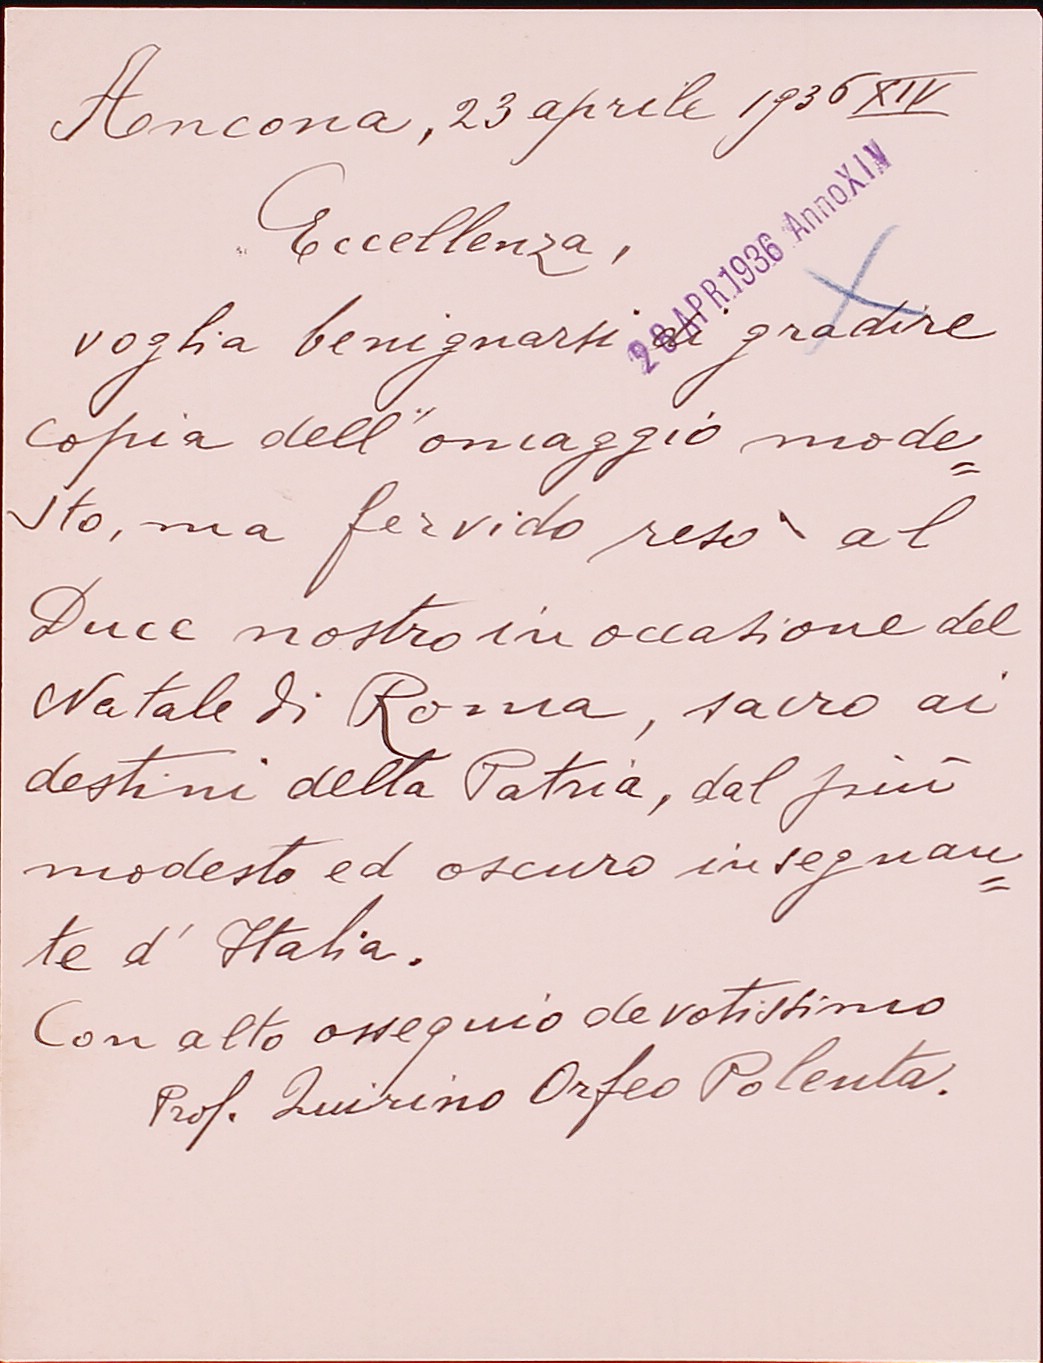 Ancona, 23 aprile 1936 XIV
28 APR.1936 Anno XIV
Eccellenza,
voglia benignarsi di gradire
copia dell'omaggio mode=
sto, ma fervido reso al
Duce nostro in occasione del
Natale di Roma, sacro ai
destini della Patria, dal più
modesto ed oscuro insegnan=
te d'Italia.
Con alto ossequio devotissimo
Prof. Quirino Orfeo Polenta.